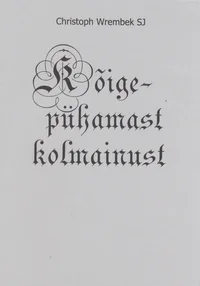 Christoph Wrembek SJ
Kõige-
pühamast
kolmainust